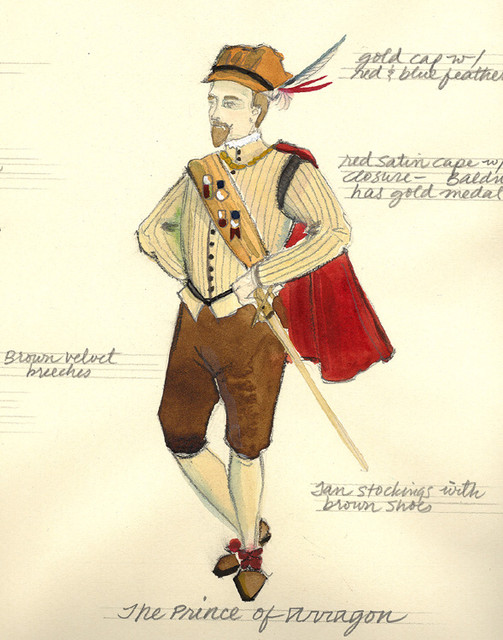 gold cap w/
red & blue feather
red satin cape w/
closure - 
has gold medal
Brown velvet
breeches
Tan stockings with
brown shoes
The Prince of Arragon